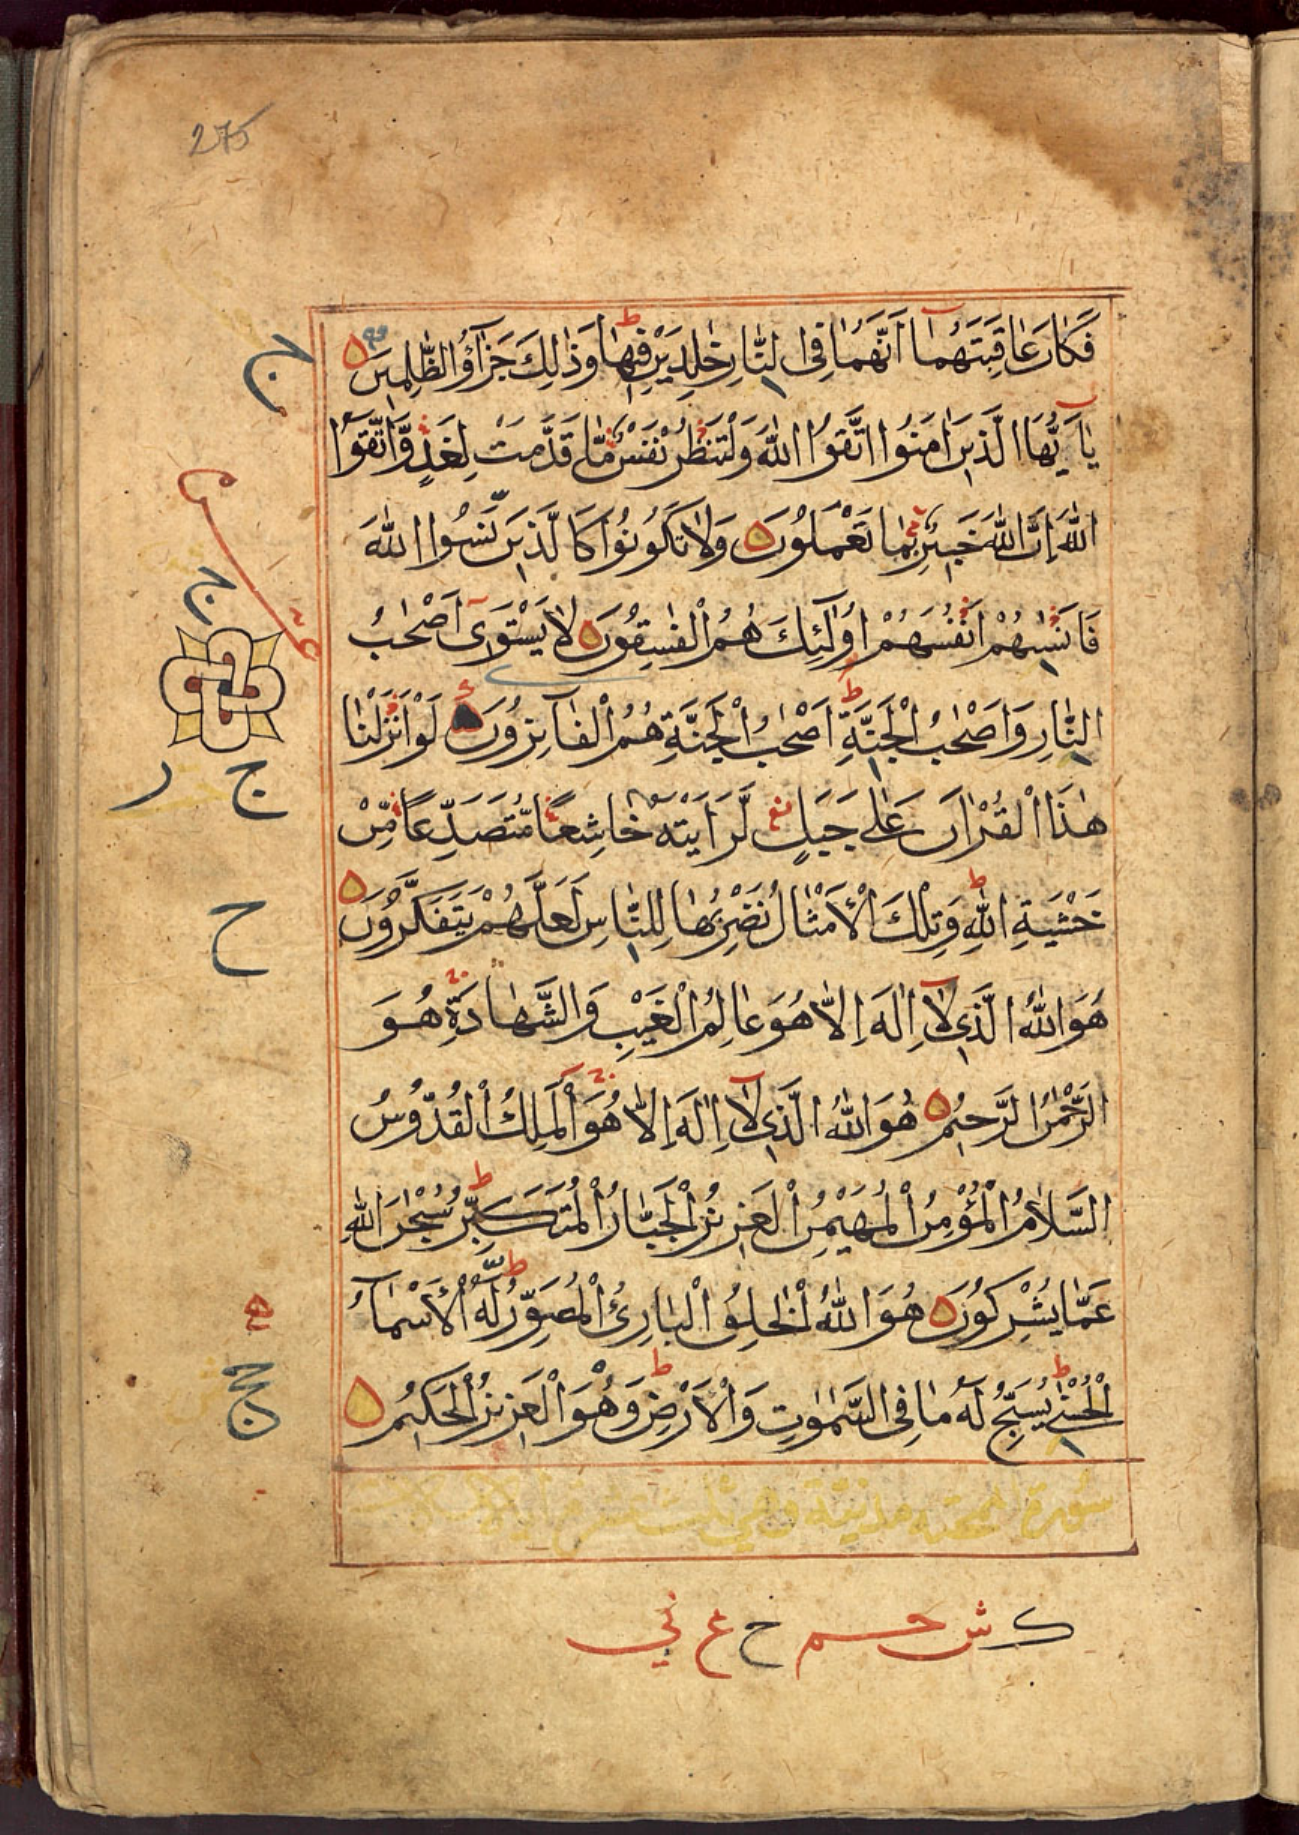 275
فَكَانَ عَاقِبَتَهُمَا أَنَّهُمَا فِى النَّارِ خٰلِدَيْنِ فِيهَا وَذٰلِكَ جَزَآؤُ الظّٰلِمِينَ
يٰاَيُّهَا الَّذِينَ اٰمَنُوا اتَّقُوا اللّٰهَ وَلْتَنْظُرْ نَفْسٌ مَّا قَدَّمَتْ لِغَدٍ وَّاتَّقُوا
اللّٰهَ اِنَّ اللّٰهَ خَبِيْرٌ بِمَا تَعْمَلُوْنَ وَلَا تَكُوْنُوْا كَالَّذِيْنَ نَسُوا اللّٰهَ
فَاَنْسٰىهُمْ اَنْفُسَهُمْ اُولٰٓئِكَ هُمُ الْفٰسِقُوْنَ لَا يَسْتَوِىٓ اَصْحٰبُ
النَّارِ وَاَصْحٰبُ الْجَنَّةِ اَصْحٰبُ الْجَنَّةِ هُمُ الْفَآئِزُوْنَ لَوْ اَنْزَلْنَا
هٰذَا الْقُرْاٰنَ عَلٰى جَبَلٍ لَّرَاَيْتَهٗ خَاشِعًا مُّتَصَدِّعًا مِّنْ
خَشْيَةِ اللّٰهِ وَتِلْكَ الْاَمْثَالُ نَضْرِبُهَا لِلنَّاسِ لَعَلَّهُمْ يَتَفَكَّرُوْنَ
هُوَ اللّٰهُ الَّذِى لَآ اِلٰهَ اِلَّا هُوَ عَالِمُ الْغَيْبِ وَالشَّهَادَةِ هُوَ
الرَّحْمٰنُ الرَّحِيْمُ هُوَ اللّٰهُ الَّذِى لَآ اِلٰهَ اِلَّا هُوَ الْمَلِكُ الْقُدُّوْسُ
السَّلَامُ الْمُؤْمِنُ الْمُهَيْمِنُ الْعَزِيْزُ الْجَبَّارُ الْمُتَكَبِّرُ سُبْحٰنَ اللّٰهِ
عَمَّا يُشْرِكُوْنَ هُوَ اللّٰهُ الْخَالِقُ الْبَارِئُ الْمُصَوِّرُ لَهُ الْاَسْمَآءُ
الْحُسْنٰى يُسَبِّحُ لَهٗ مَا فِى السَّمٰوٰتِ وَالْاَرْضِ وَهُوَ الْعَزِيْزُ الْحَكِيْمُ
سورة الممتحنه مدنية وهي ثلث عشر
ك ش حم ح ع ني